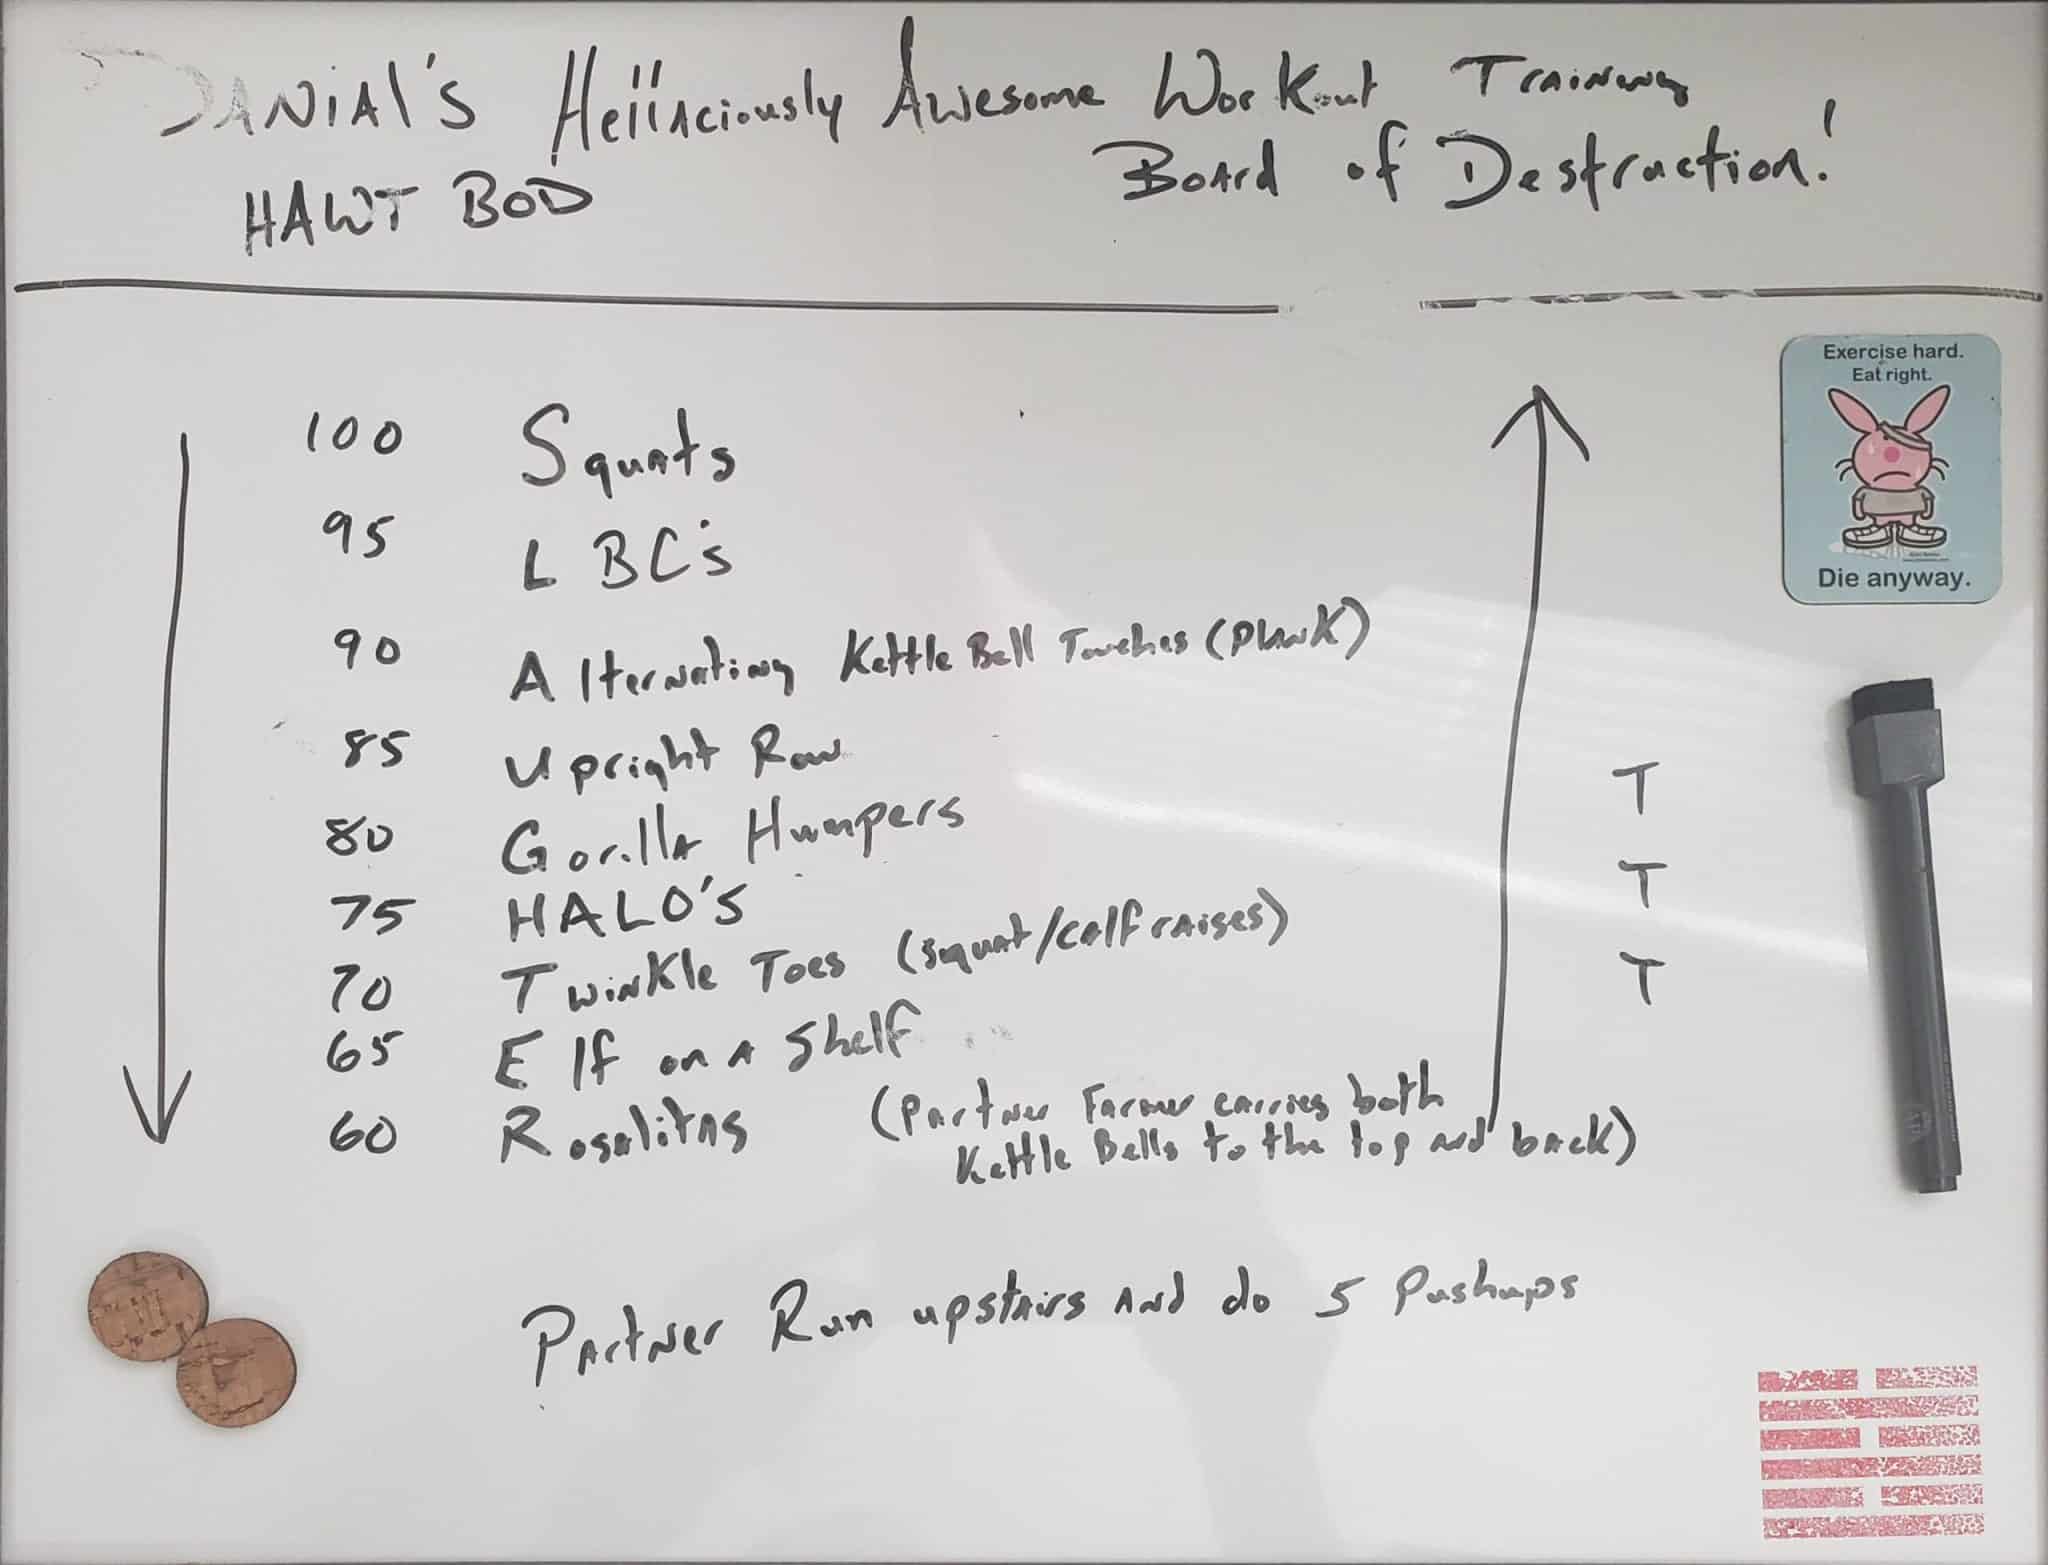 DANIAl's Hellaciously Awesome Workout Training
HAWT BOD Board of Destruction!
Exercise hard.
Eat right.
Die anyway.
100 Squats
95 LBC's
90 Alternating Kettle Bell Touches (plank)
85 Upright Row
80 Gorilla Humpers
75 HALO'S
70 Twinkle Toes (squat/calf raises)
65 Elf on a Shelf
60 Rosalitas (partner Farmer carries both
Kettle Bells to the top and back)
T
T
T
Partner Run upstairs and do 5 Pushups